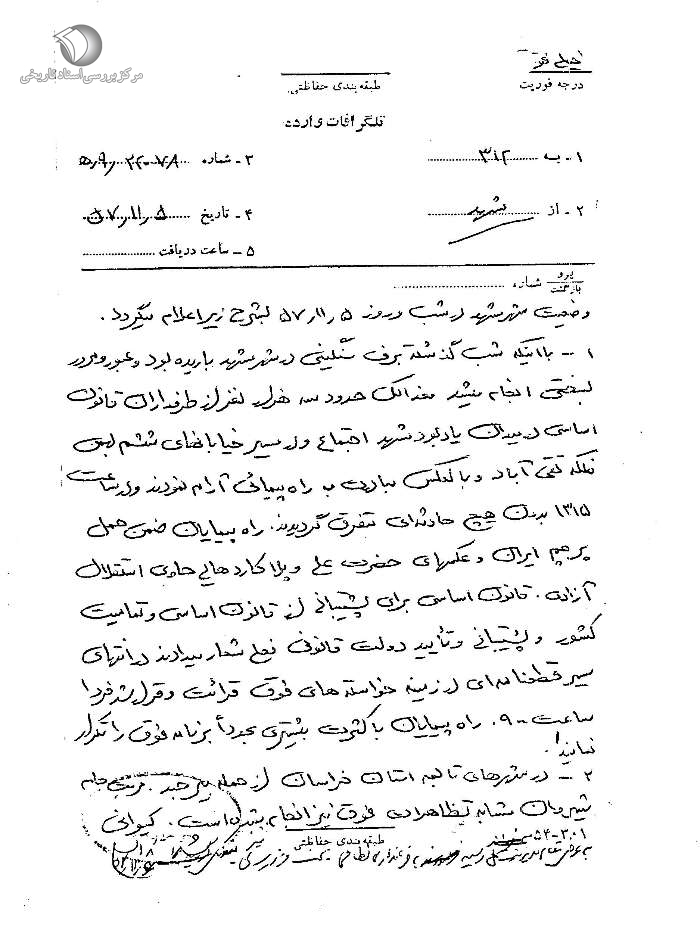 مرکز بررسی اسناد تاریخی
خیلی فو
درجه فوریت
طبقه‌بندی حفاظتی
تلگرافات وارده
۱ - ب ۳۱۲
۳ - شماره ۲۲۰۷۸
۲ - از مشهد
۴ - تاریخ ۵ر۱۱ر۵۷
۵ - ساعت دریافت
پیرو
بازگشت شماره
وضعیت شهر مشهد در شب و روز ۵ر۱۱ر۵۷ بشرح زیر اعلام میگردد.
۱ - با اینکه شب گذشته برف سنگینی در شهر مشهد باریده بود و عبور و مرور
بسختی انجام میشد معذالک حدود سه هزار نفر از طرفداران قانون
اساسی در میدان یادبود شهید اجتماع و در مسیر خیابانهای ششم بهمن
فلکه تقی آباد و بالعکس مبادرت به راه پیمائی آرام نمودند و در ساعت
۱۳۱۵ بدون هیچ حادثه‌ای متفرق گردیدند. راه پیمایان ضمن حمل
پرچم ایران و عکسهای حضرت علی و پلاکاردهائی حاوی استقلال
آزادی. قانون اساسی برای پشتیبانی از قانون اساسی و تمامیت
کشور و پشتیبانی و تأیید دولت قانونی فعلی شعار میدادند در انتهای
مسیر قطعنامه‌ای در زمینه خواسته‌های فوق قرائت و قرار شد فردا
ساعت ۹۰۰ راه پیمایان با کثرت بیشتری مجدداً برنامه فوق را تکرار
نمایند.
۲ - در شهرهای تابعه استان خراسان از جمله بیرجند. تربت جام
شیروان مشابه تظاهرات فوق نیز انجام شده است. کیوانی
۵۴-۳۰۱
طبقه‌بندی حفاظتی